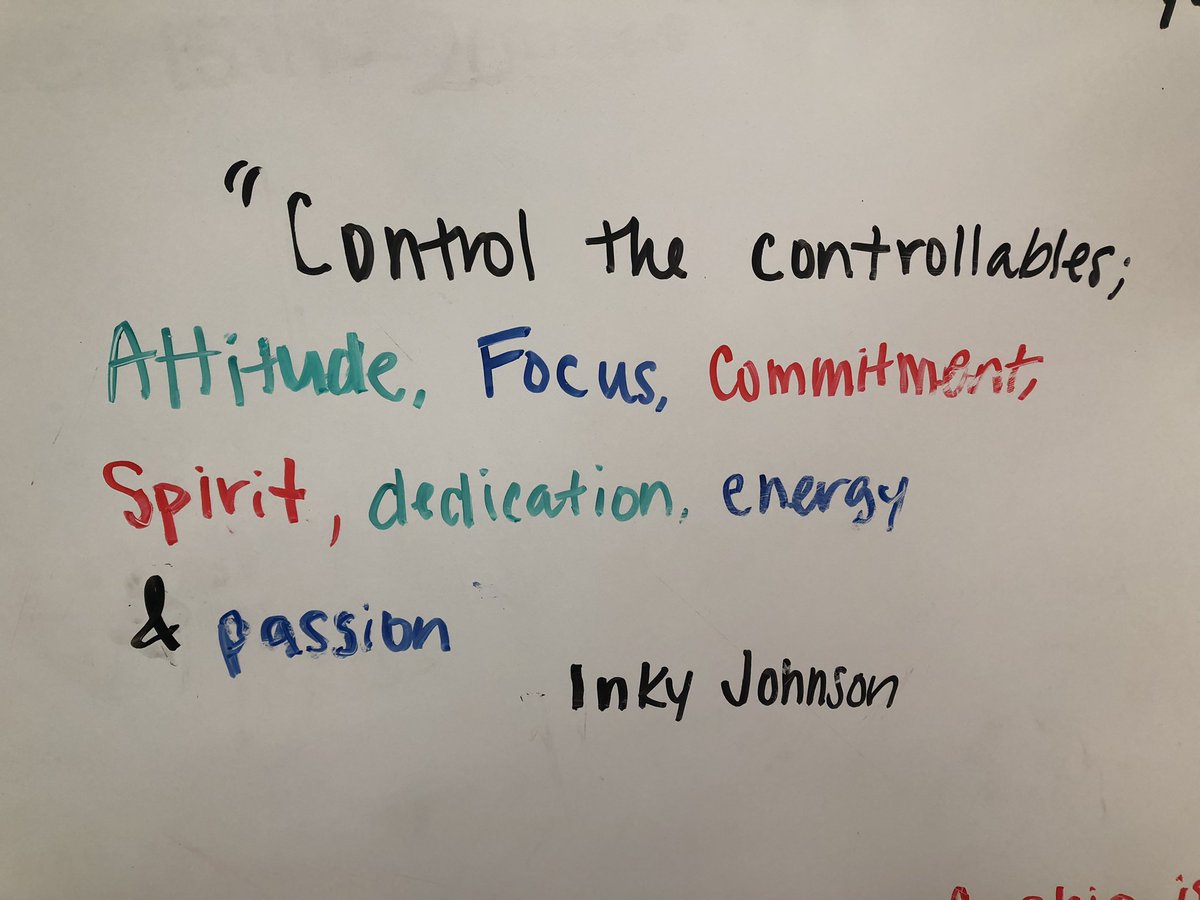 “Control the controllables;
Attitude, Focus, Commitment,
Spirit, dedication, energy
& passion
Inky Johnson